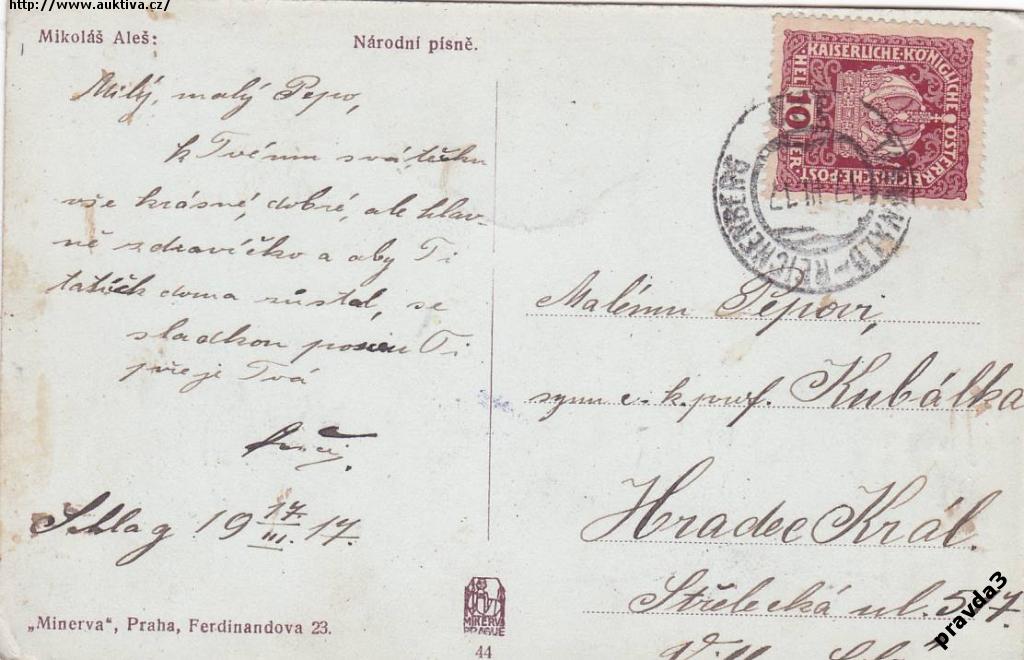 http://www.auktiva.cz/
Mikoláš Aleš:
Národní písně.
Milý, malý Pepo,
k Tvému svátečku
vše krásné, dobré, ale hlav-
ně zdravíčko a aby Ti
tatíček doma zůstal, se
sladkou Ti
přeje Tvá
Schlag 19 17/III. 17.
KAISERLICHE KÖNIGLICHE ÖSTERREICHISCHE POST
10
HELLER
REICHENBERG
17 III 17
Malému Pepovi,
synu c. k. prof. Kubálka
Hradec Král.
Střelecká ul. 517
„Minerva“, Praha, Ferdinandova 23.
MINERVA
PRAGUE
44
pravda3